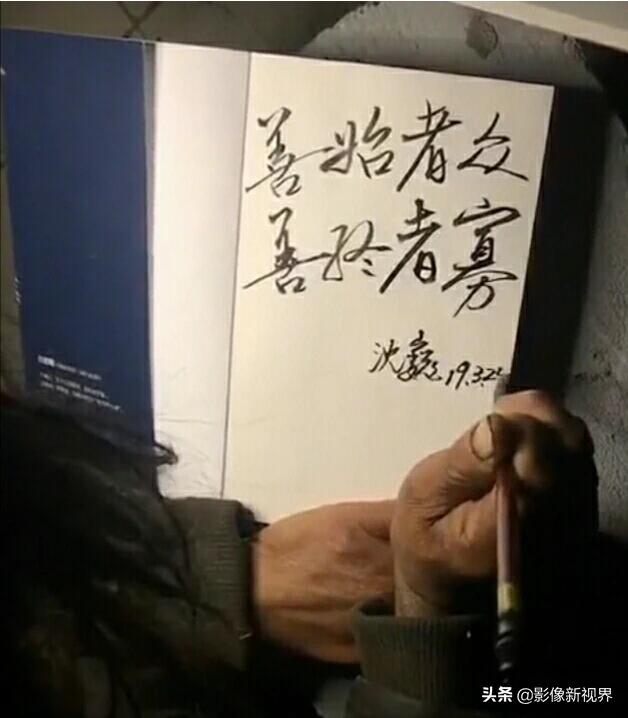 善始者众
善终者寡
沈巍 19.3.25
头条 @影像新视界